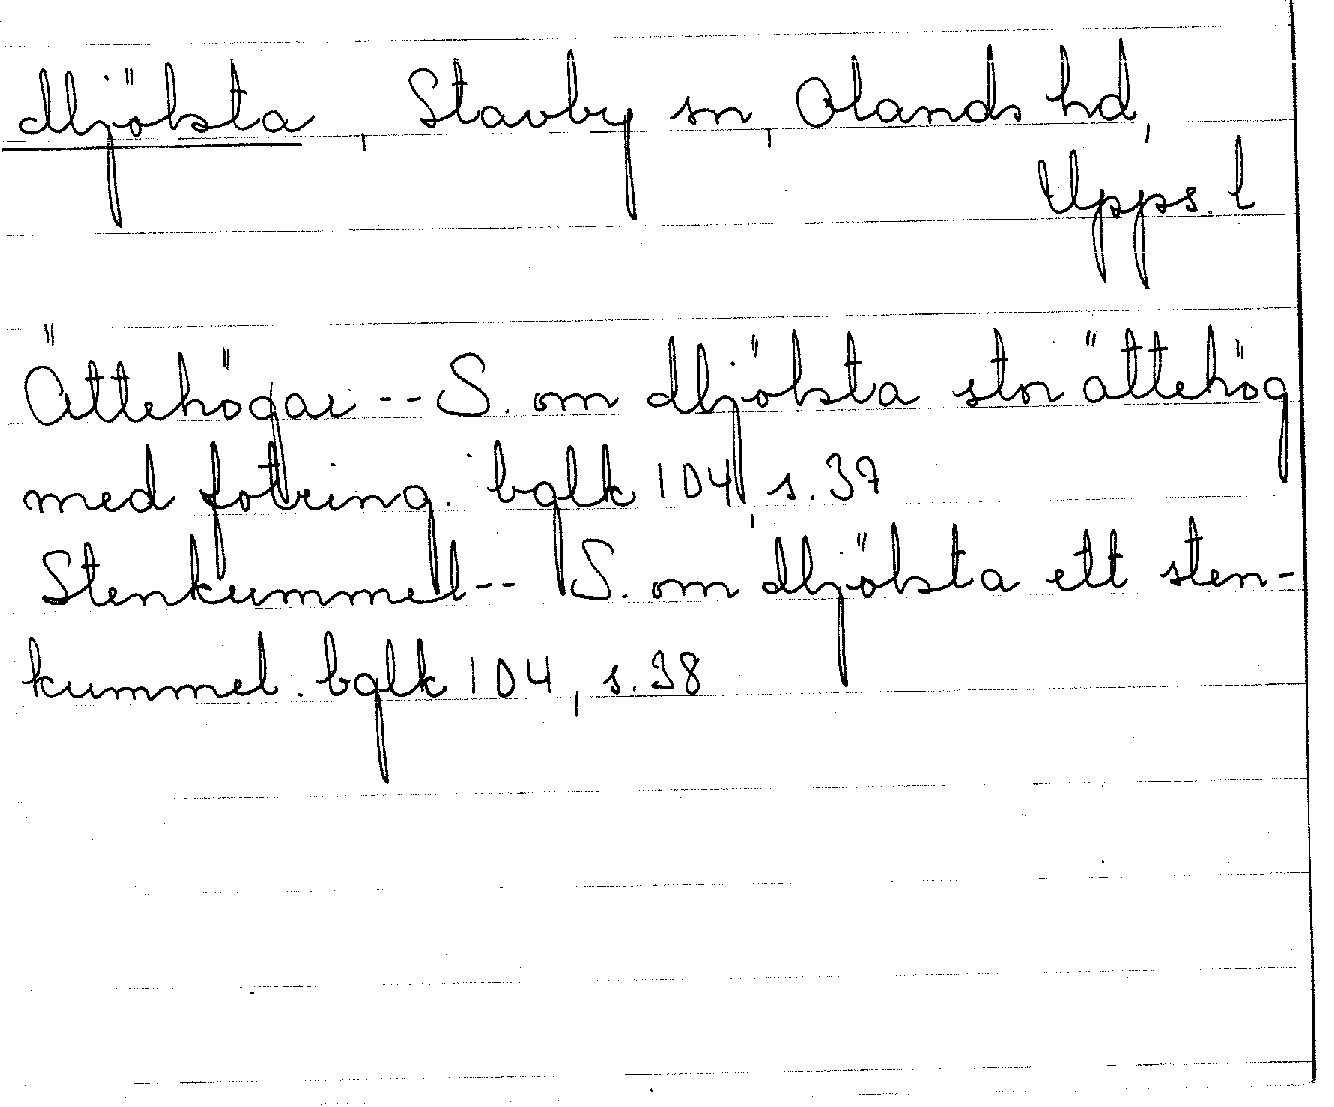 Mjöksta, Stavby sn, Olands hd,
Upps. l
Ättehögar -- S. om Mjöksta stor ättehög
med fotring. bglk 104, s. 37
Stenkummel -- S. om Mjöksta ett sten-
kummel. bglk 104, s. 38